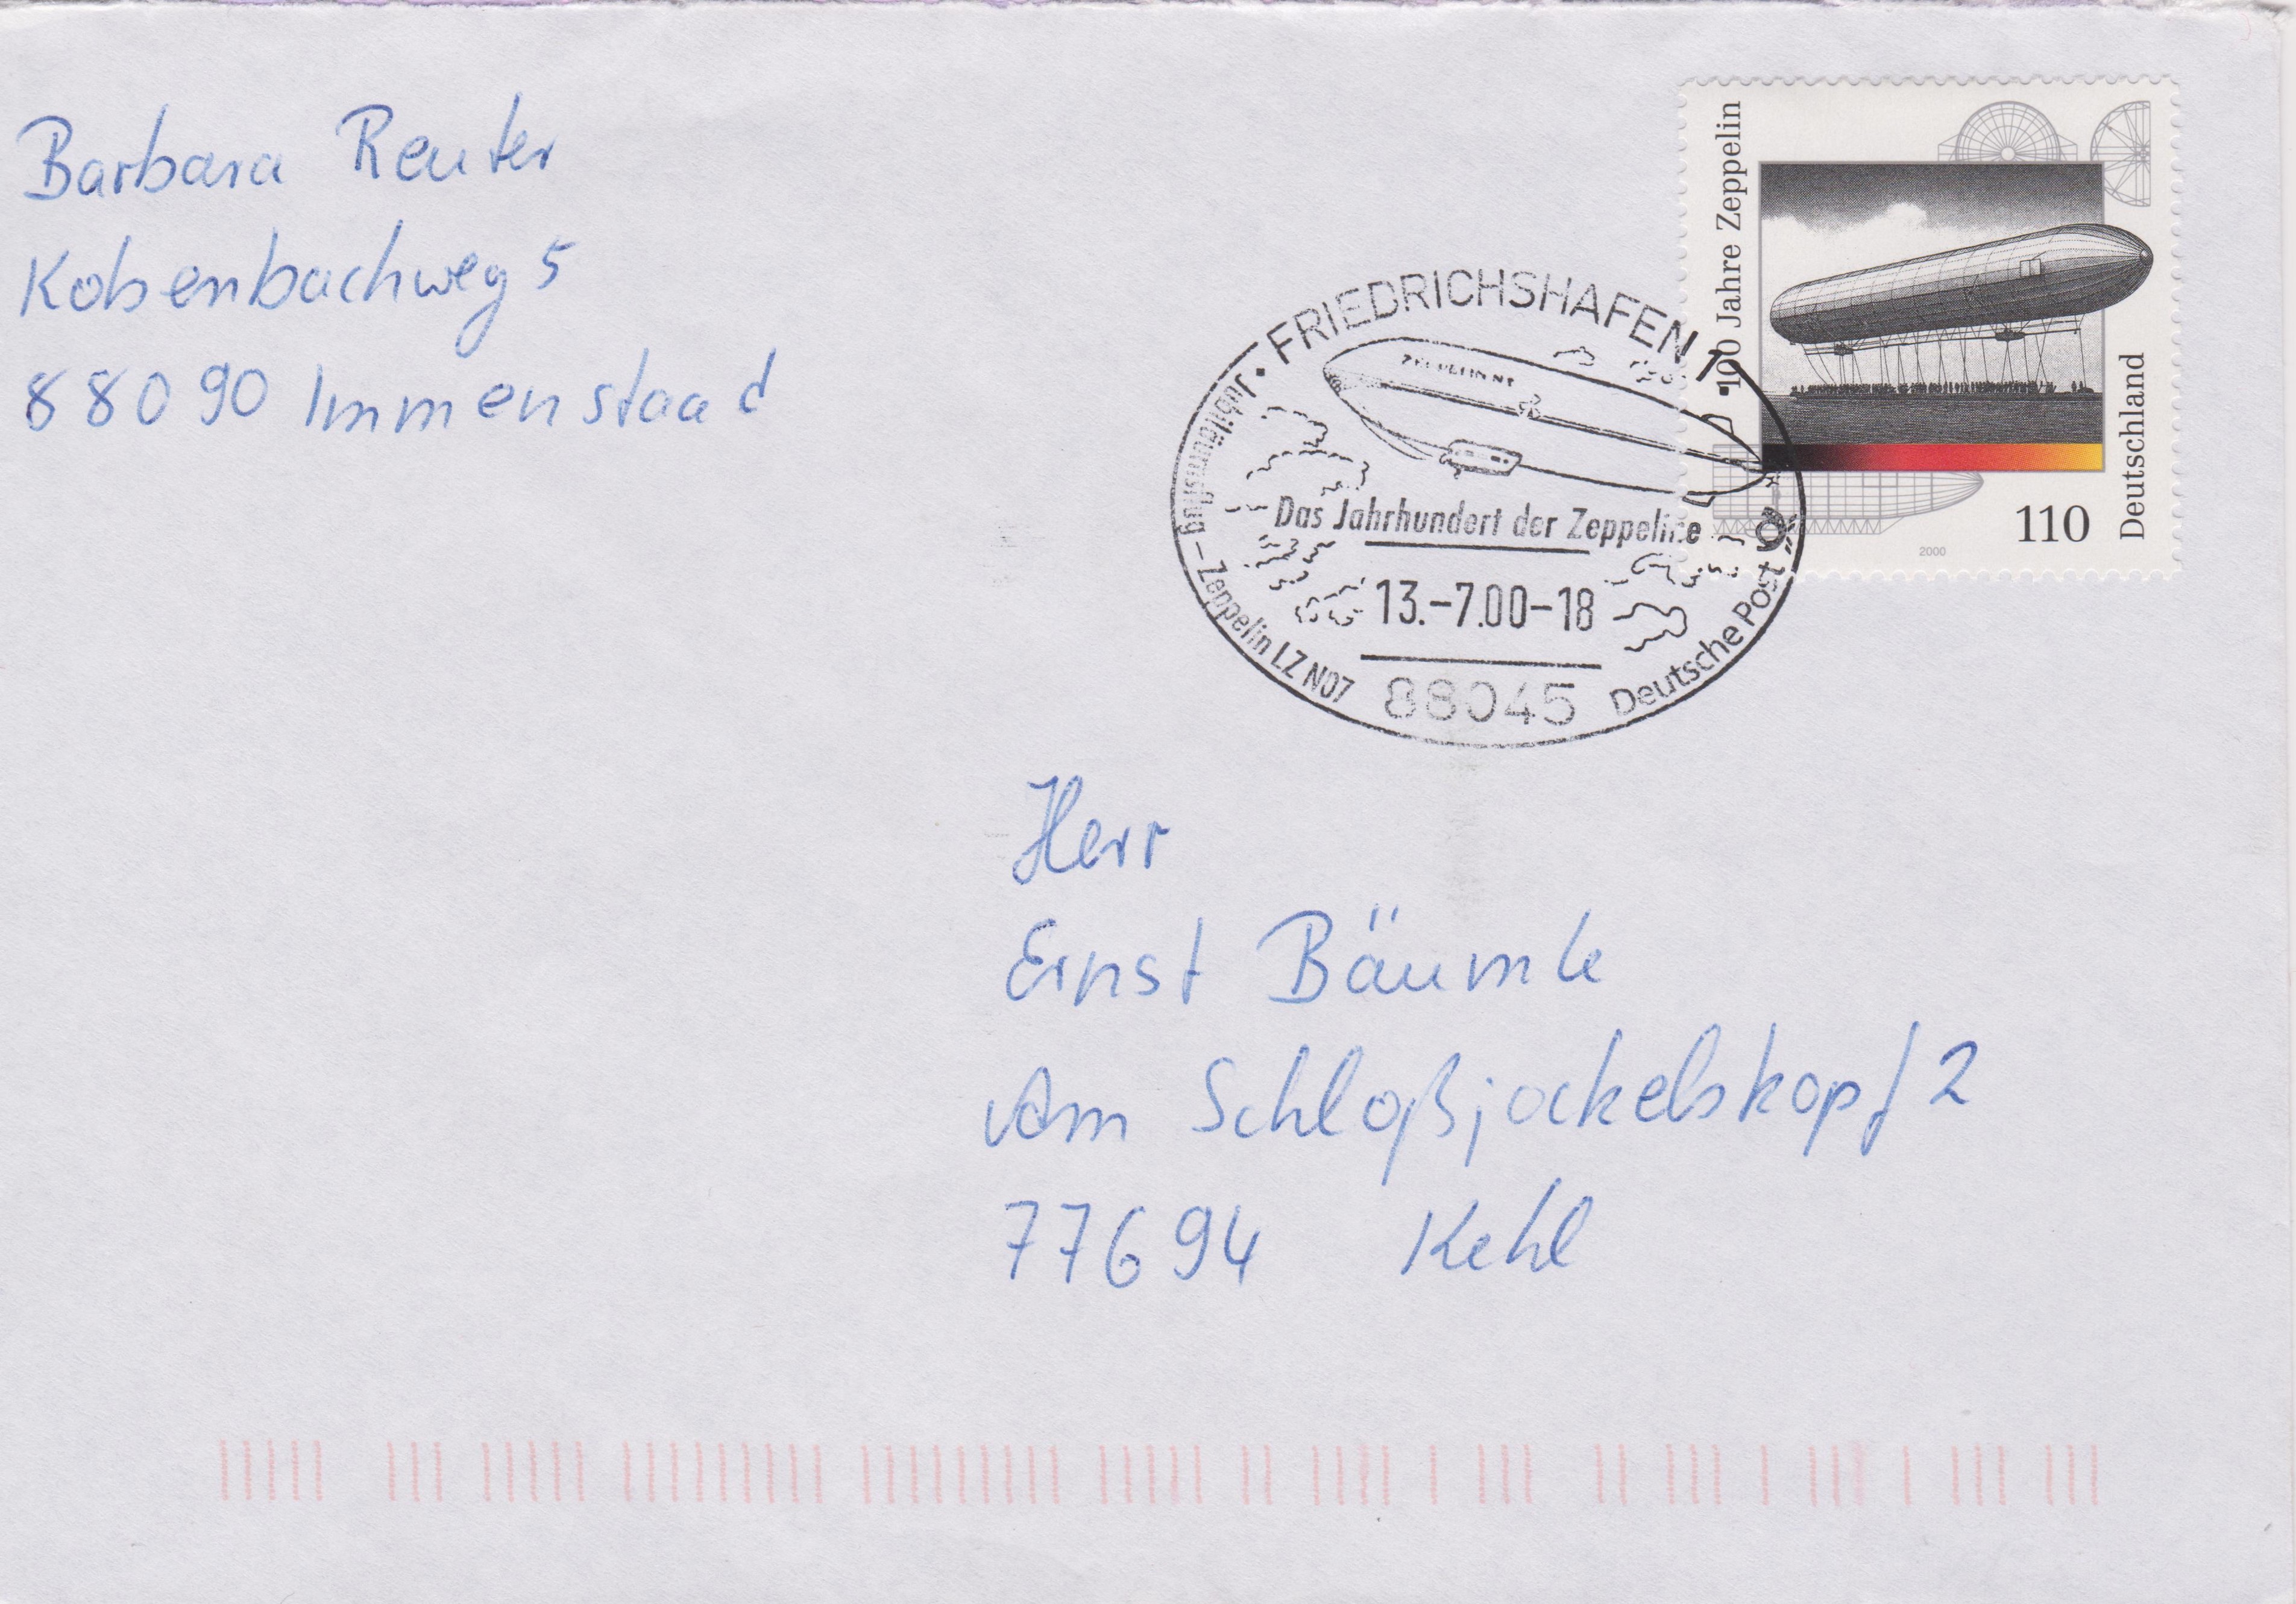 Barbara Reuter
Kobsenbachweg 5
88090 Immenstaad
100 Jahre Zeppelin
Deutschland
110
2000
• FRIEDRICHSHAFEN 1 •
ZEPPELIN NT
Das Jahrhundert der Zeppeline
13.-7.00-18
88045
Jubiläumsflug – Zeppelin LZ N07
Deutsche Post
Herr
Ernst Bäumle
Am Schloßjockelskopf 2
77694 Kehl